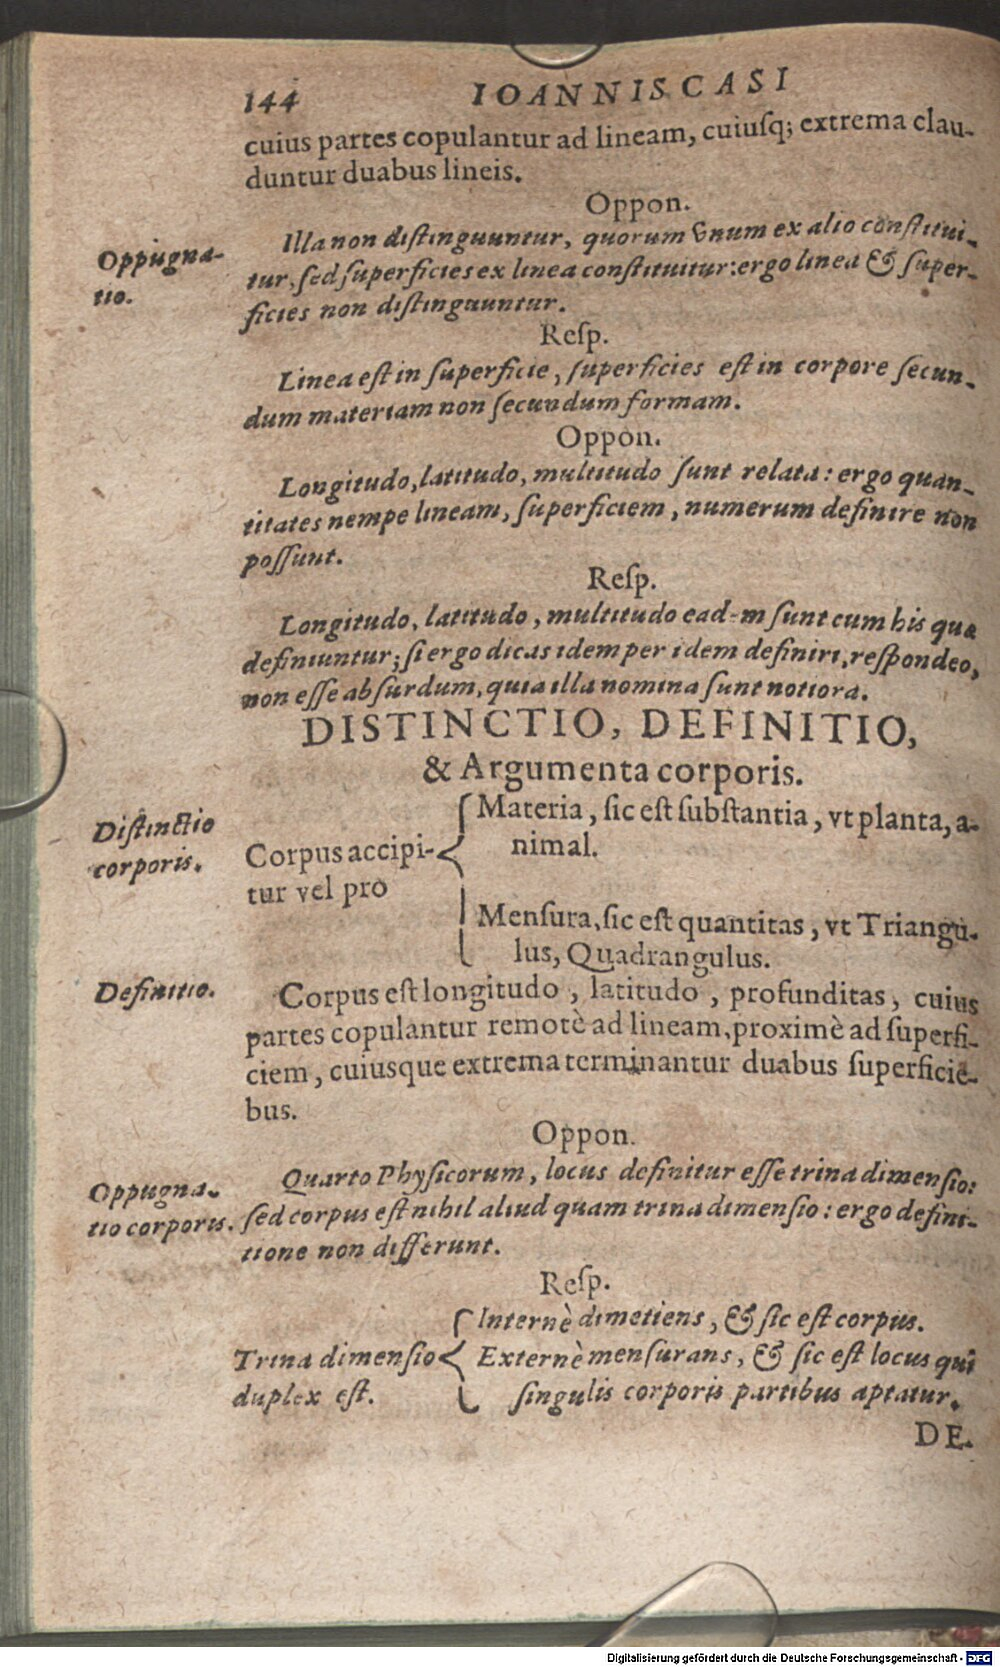 144 IOANNIS CASI
cuius partes copulantur ad lineam, cuiusq; extrema clau-
duntur duabus lineis.
Oppon.
Oppugna-
tio.
Illa non distinguuntur, quorum vnum ex alio constitui-
tur, sed superficies ex linea constituitur: ergo linea & super-
ficies non distinguuntur.
Resp.
Linea est in superficie, superficies est in corpore secun-
dum materiam non secundum formam.
Oppon.
Longitudo, latitudo, multitudo sunt relata: ergo quan-
titates nempe lineam, superficiem, numerum definire non
possunt.
Resp.
Longitudo, latitudo, multitudo eadem sunt cum his quæ
definiuntur; si ergo dicas idem per idem definiri, respondeo,
non esse absurdum, quia illa nomina sunt notiora.
DISTINCTIO, DEFINITIO,
& Argumenta corporis.
Distinctio
corporis.
Corpus accipi-
tur vel pro
Materia, sic est substantia, vt planta, a-
nimal.
Mensura, sic est quantitas, vt Triangu-
lus, Quadrangulus.
Definitio.
Corpus est longitudo, latitudo, profunditas, cuius
partes copulantur remotè ad lineam, proximè ad superfi-
ciem, cuiusque extrema terminantur duabus superficie-
bus.
Oppon.
Oppugna-
tio corporis.
Quarto Physicorum, locus definitur esse trina dimensio:
sed corpus est nihil aliud quam trina dimensio: ergo defini-
tione non differunt.
Resp.
Trina dimensio
duplex est.
Internè dimetiens, & sic est corpus.
Externè mensurans, & sic est locus qui
singulis corporis partibus aptatur.
DE.
Digitalisierung gefördert durch die Deutsche Forschungsgemeinschaft - DFG